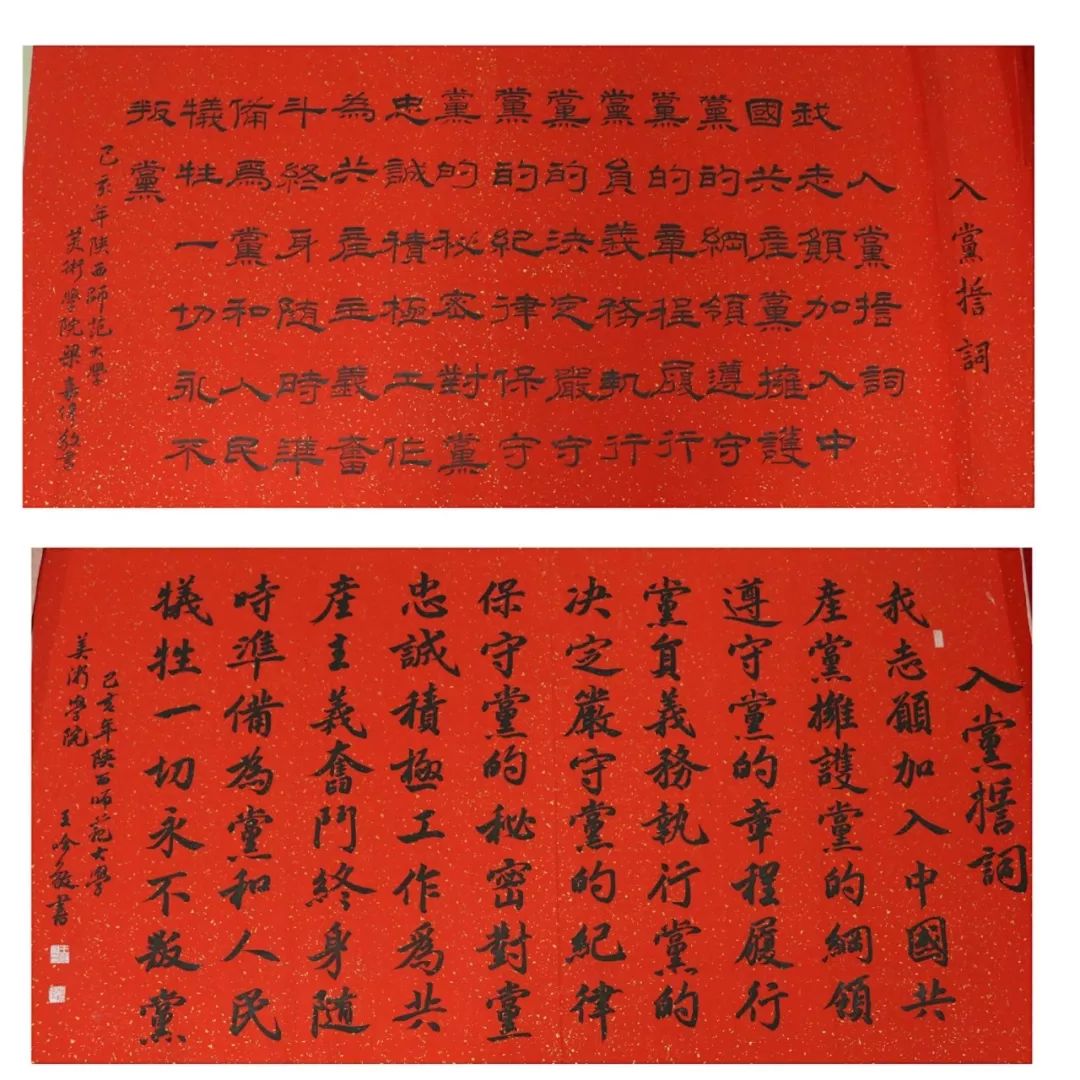 入黨誓詞
入黨誓詞
我志願加入中
國共產黨擁護
黨的綱領遵守
黨的章程履行
黨員義務執行
黨的决定嚴守
黨的紀律保守
黨的秘密對黨
忠誠積極工作
為共產主義奮
斗終身隨時準
備爲黨和人民
犧牲一切永不
叛黨
己亥年陝西師范大學
美術學院梁嘉敬書
入黨誓詞
我志願加入中國共
產黨擁護黨的綱領
遵守黨的章程履行
黨員義務執行黨的
决定嚴守黨的紀律
保守黨的秘密對黨
忠誠積極工作爲共
產主義奮鬥終身隨
時準備為黨和人民
犧牲一切永不叛黨
己亥年陝西師范大學
美術學院 王敬書